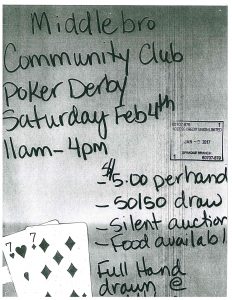 Middlebro
Community Club
Poker Derby
Saturday Feb 4th
11am - 4pm
- $5.00 per hand
- 50/50 draw
- Silent auction
- Food availabl
Full Hand
drawn @
7 7
JAN - 2017